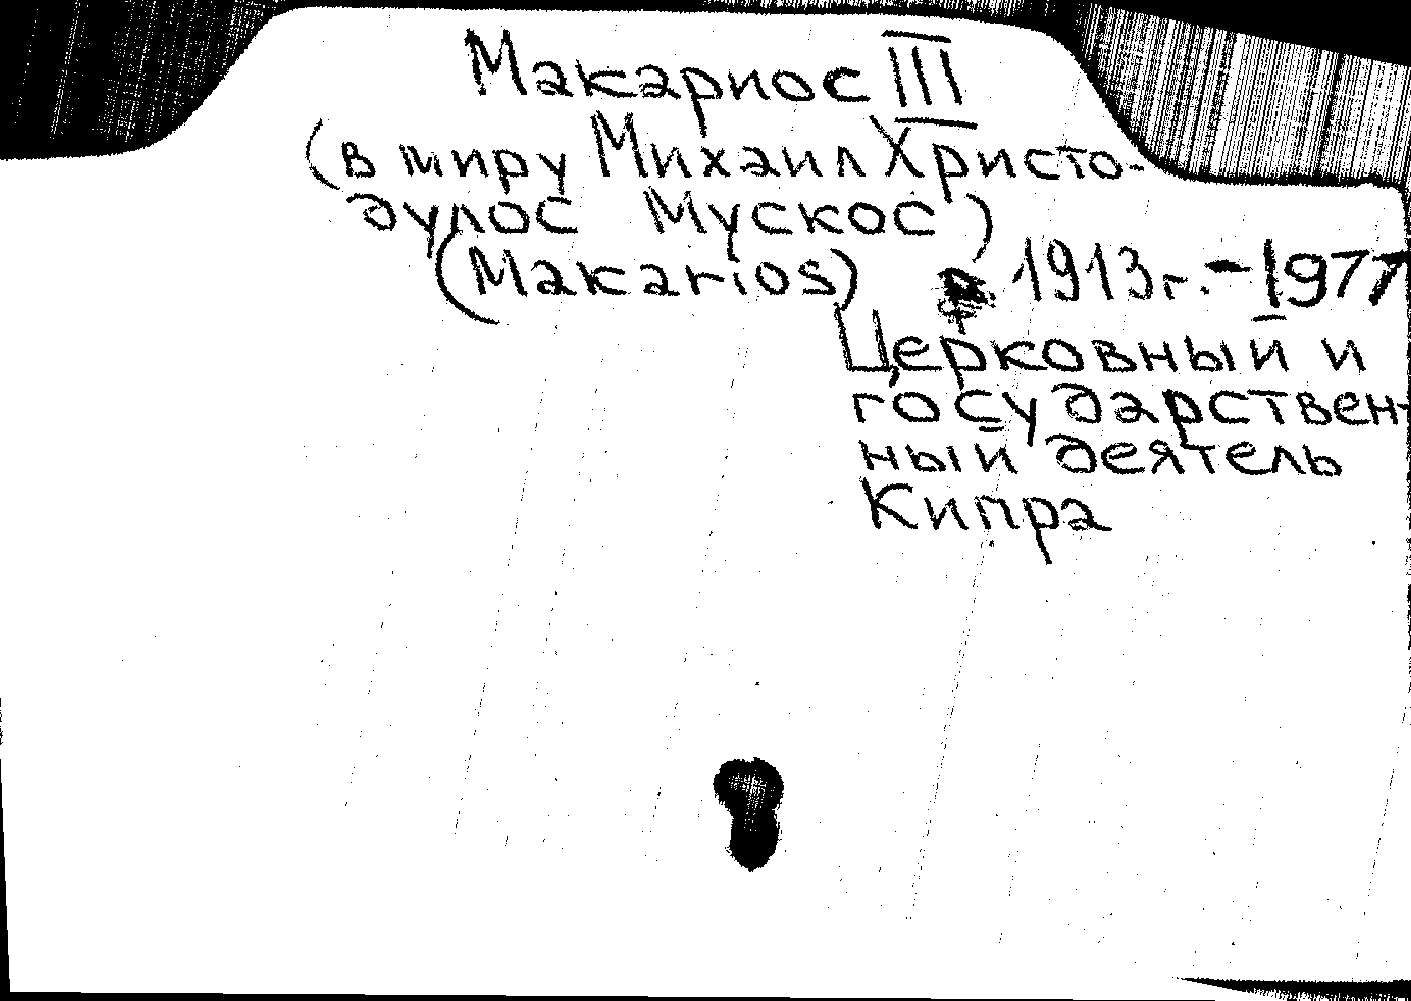 Макариос III
(в миру Михаил Христо-
дулос Мускос)
(Makarios) 1913г. - 1977
Церковный и
государствен-
ный деятель
Кипра